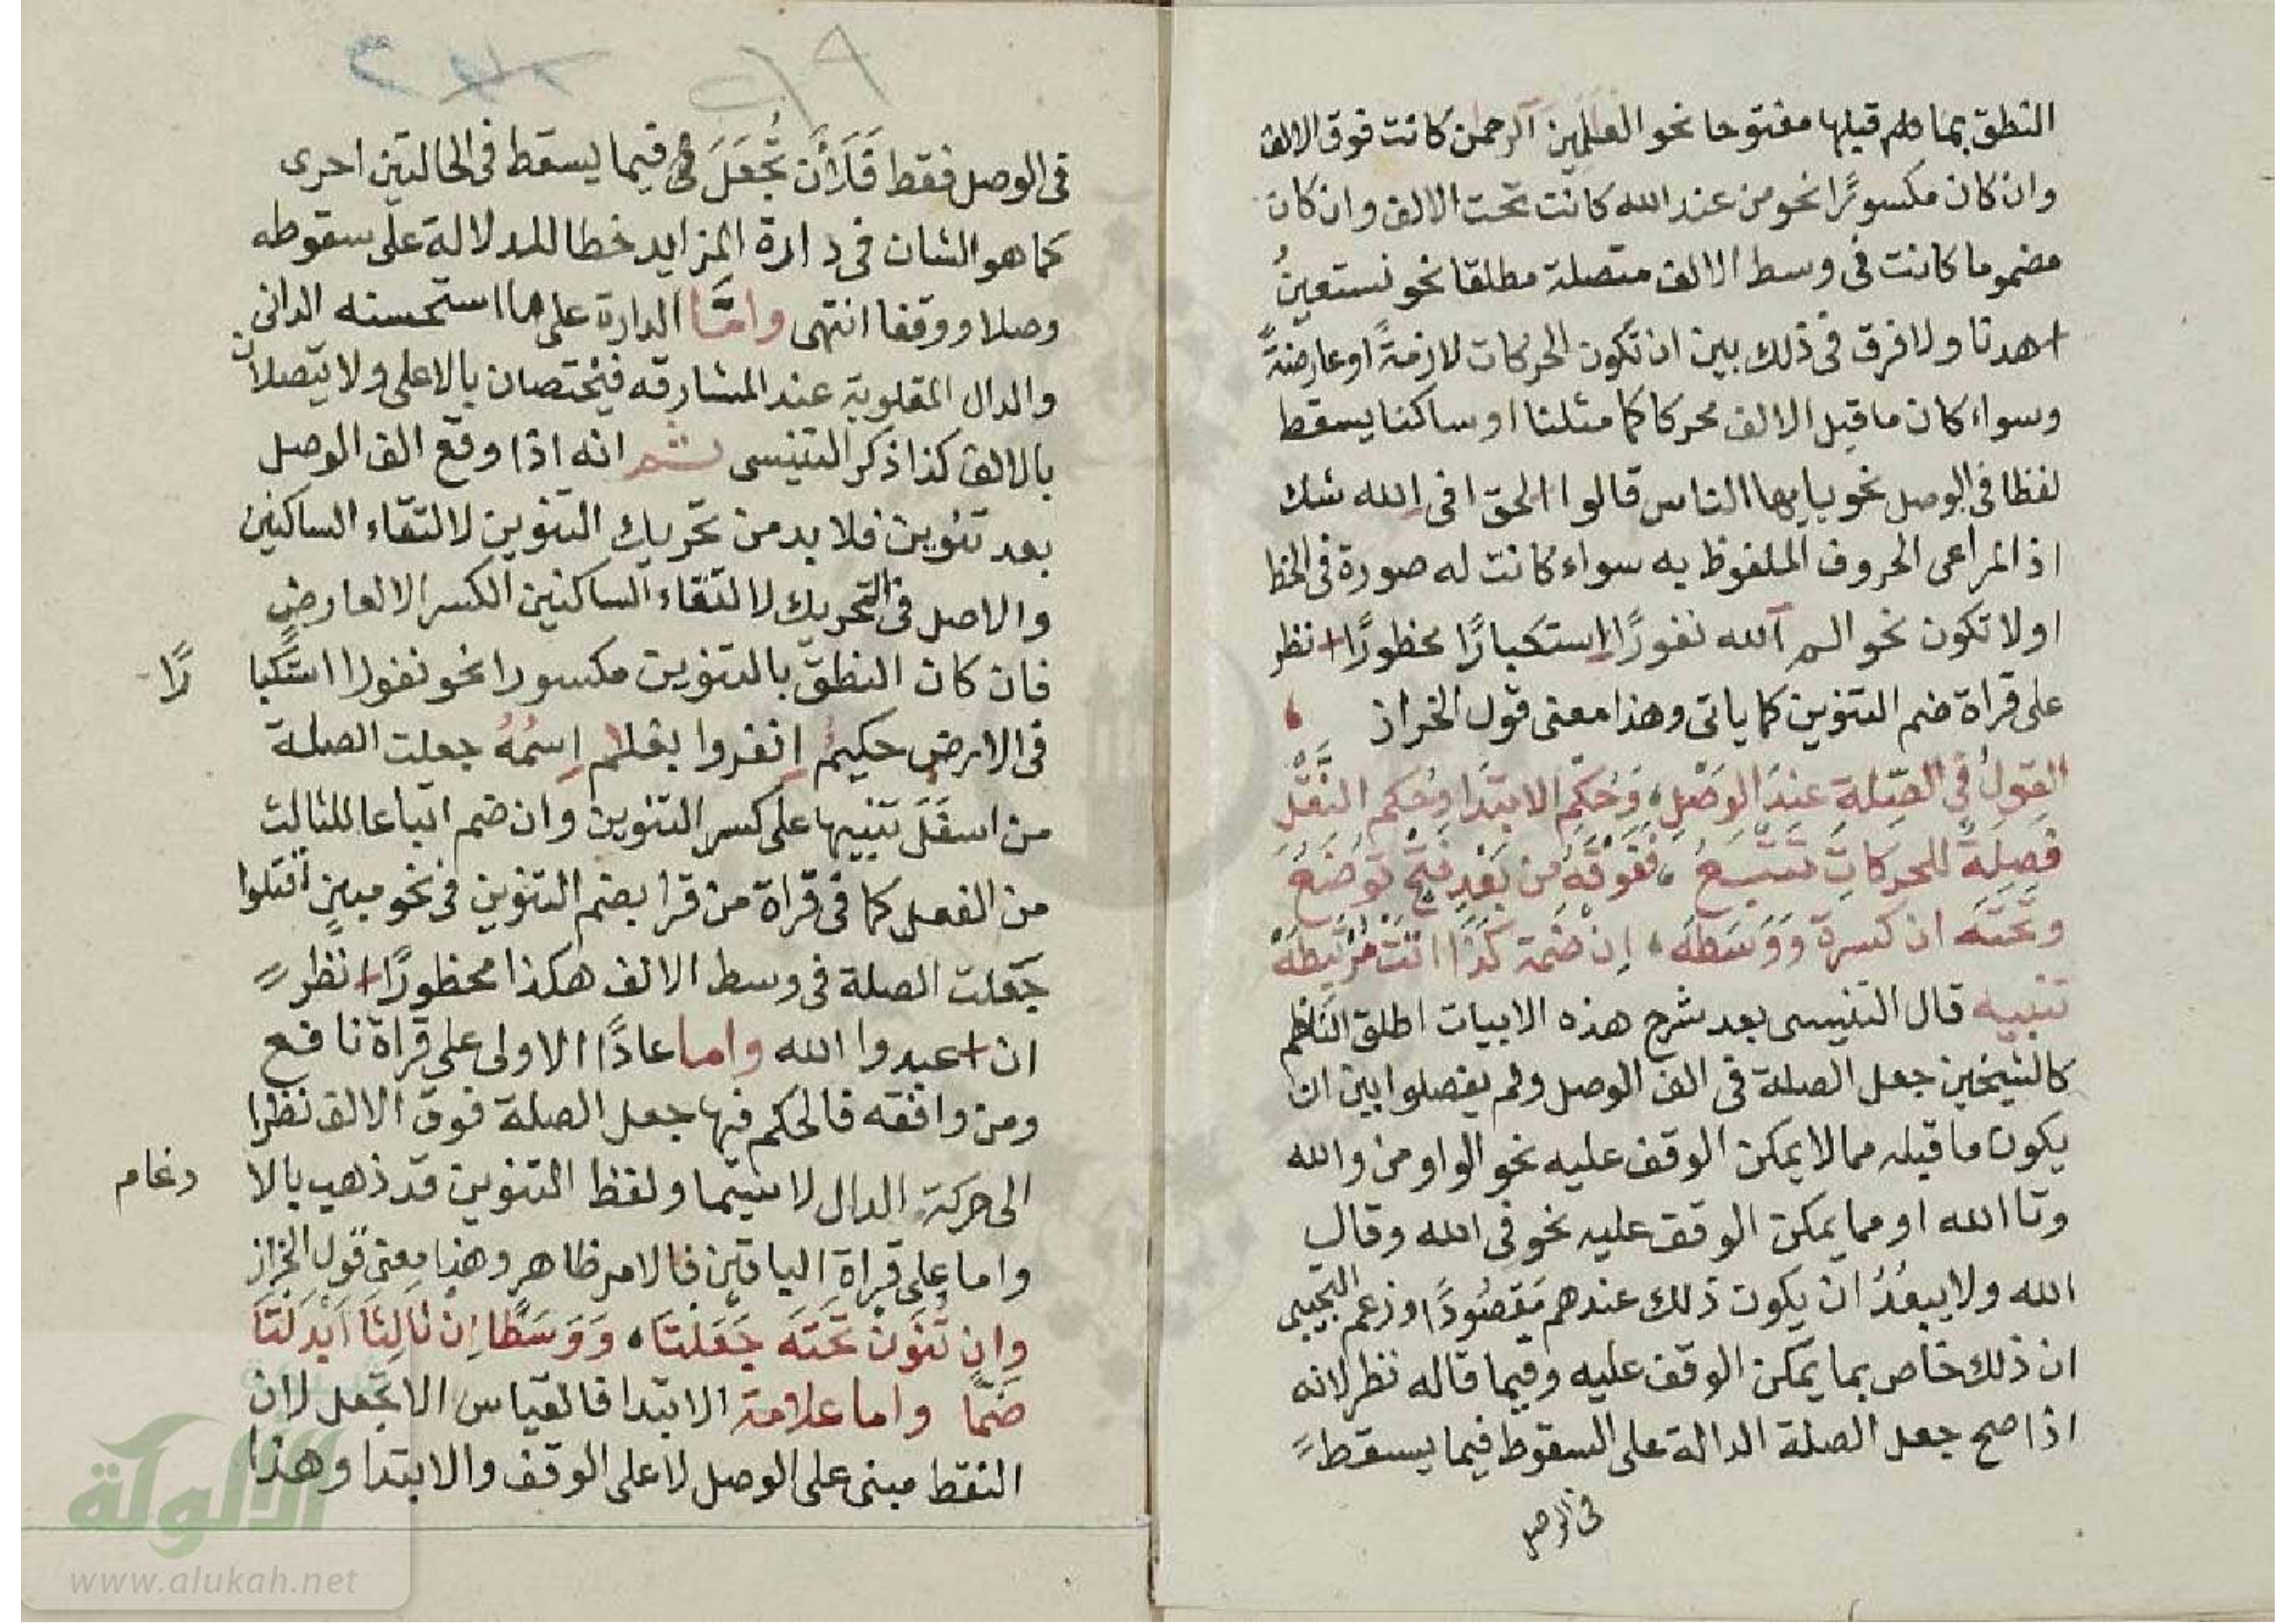 النطق بما قبلها مفتوحا نحو العلمين الرحمن كانت فوق الالف
وان كان مكسورًا نحو من عند الله كانت تحت الالف وان كان
مضموما كانت فى وسط الالف متصلة مطلقا نحو نستعينُ
اهدنا ولا فرق فى ذلك بين ان تكون الحركات لازمةً او عارضةً
وسواء كان ما قبل الالف محركا كما مثلنا او ساكنا يسقط
لفظا فى الوصل نحو يايها الناس قالوا الحق افى الله شك
اذ المراعى الحروف الملفوظ به سواء كانت له صورة فى الخط
اولا تكون نحو الم الله نفورًا استكبارًا محظورًا انظر
على قراة ضم التنوين كما ياتى وهذا معنى قول الخراز
القولُ فى الصِّلةِ عندَ الوَصْلِ، وَحُكمِ الابتدا وحكم النَّقْلِ
فصِلَةٌ للحركاتِ تتَّبعُ، ففوقَه من بَعْدِ فتحٍ توضَعُ
وتحتَه ان كسرة وَوَسَطَه، إن ضمة كذا اتتْ مُرتبطَهْ
تنبيه قال التنيسى بعد شرح هذه الابيات اطلق الناظم
كالشيخين جعل الصلة فى الف الوصل ولم يفصلوا بين ان
يكون ما قبله مما لا يمكن الوقف عليه نحو الواو من والله
وتا الله او مما يمكن الوقف عليه نحو فى الله وقال
الله ولا يبعُدُ ان يكون ذلك عندهم مَقصُودًا وزعم التجيبى
ان ذلك خاص بما يمكن الوقف عليه وفيما قاله نظر لانه
اذا صح جعل الصلة الدالة على السقوط فيما يسقط
فى الوصل
فى الوصل فقط فَلَأَن تُجعَلَ فيما يسقط فى الحالتين احرى
كما هو الشان فى دارة المزايد خطا للدلالة على سقوطه
وصلا ووقفا انتهى وامَّا الدارة على ما استحسنه الدانى
والدال المقلوبة عند المشارقه فيختصان بالاعلى ولا يتصلان
بالالف كذا ذكر التنيسى ثم انه اذا وقع الف الوصل
بعد تنوين فلا بد من تحريك التنوين لالتقاء الساكنين
والاصل فى التحريك لالتقاء الساكنين الكسر الا لعارض
فان كان النطق بالتنوين مكسورا نحو نفورا استكبا رًا
فى الارض حكيمٌ انفروا بغلم اسمُهُ جعلت الصلة
من اسفَلَ تنبيها على كسر التنوين وان ضم اتباعا للثالث
من الفعل كما فى قراة من قرا بضم التنوين فى نحو مبينٍ اقتلوا
جَعلت الصلة فى وسط الالف هكذا محظورًا انظر
ان اعبدوا الله واما عادًا الاولى على قراة نافع
ومن وافقه فالحكم فيها جعل الصلة فوق الالف نظرا
الى حركة الدال لا سيَّما ولفظ التنوين قد ذهب بالا دغام
واما على قراة الباقين فالامر ظاهر وهذا معنى قول الخراز
وان تُنَوِّن تحتَه جَعَلتَا، وَوَسَطًا إن ثالثا ابدلتَا
ضَمًّا واما علامة الابتدا فالقياس الا تجعل لان
النقط مبنى على الوصل لا على الوقف والابتدا وهذا
الألوكة
www.alukah.net